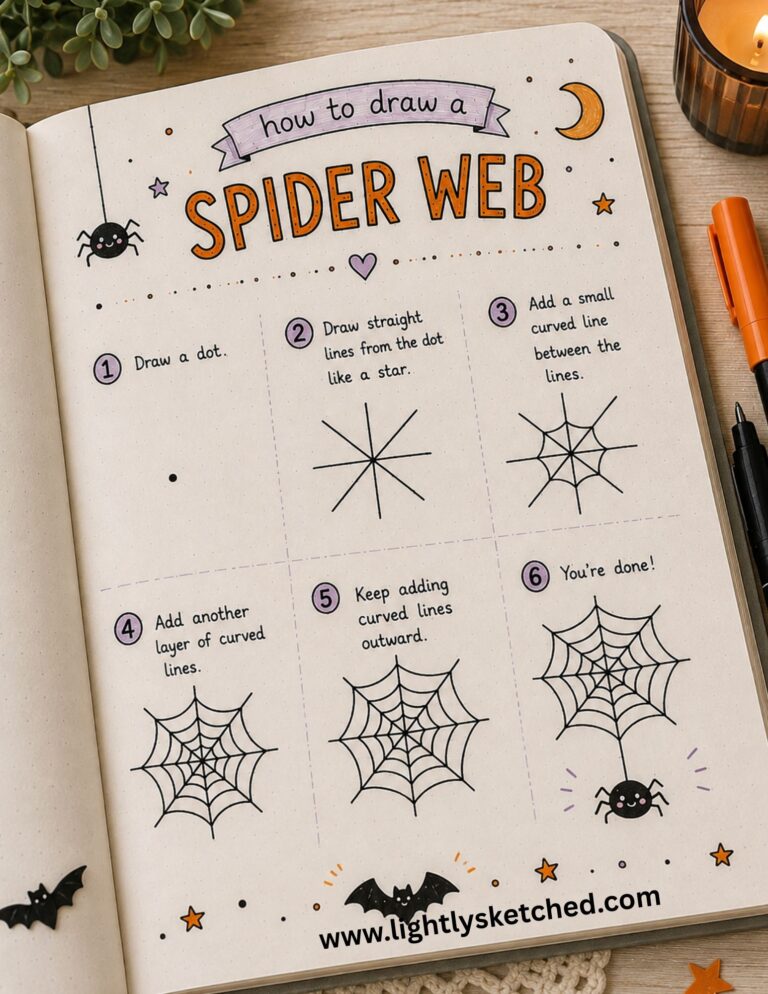 how to draw a
SPIDER WEB
1 Draw a dot.
2 Draw straight
lines from the dot
like a star.
3 Add a small
curved line
between the
lines.
4 Add another
layer of curved
lines.
5 Keep adding
curved lines
outward.
6 You're done!
www.lightlysketched.com